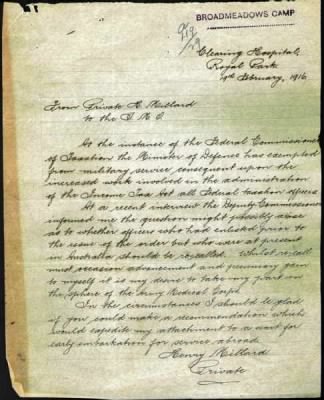 BROADMEADOWS CAMP
Clearing Hospital,
Royal Park
February, 1916
From Private H. Millard
to the
At the instance of the Federal Commissioner
of Taxation the Minister of Defence has exempted
from military service, consequent upon the
increased work involved in the administration
of the Income Tax Act all Federal taxation officers
At a recent interview the Deputy Commissioner
informed me the question might possibly arise
as to whether officers who had enlisted prior to
the issue of the order but who were at present
in Australia should be recalled. Whilst recall
must occasion advancement and pecuniary gain
to myself it is my desire to take my part in
the sphere of the Army Medical Corps.
In the circumstances I should be glad
if you could make a recommendation which
would expedite my attachment to a unit for
early embarkation for service abroad.
Henry Millard
Private